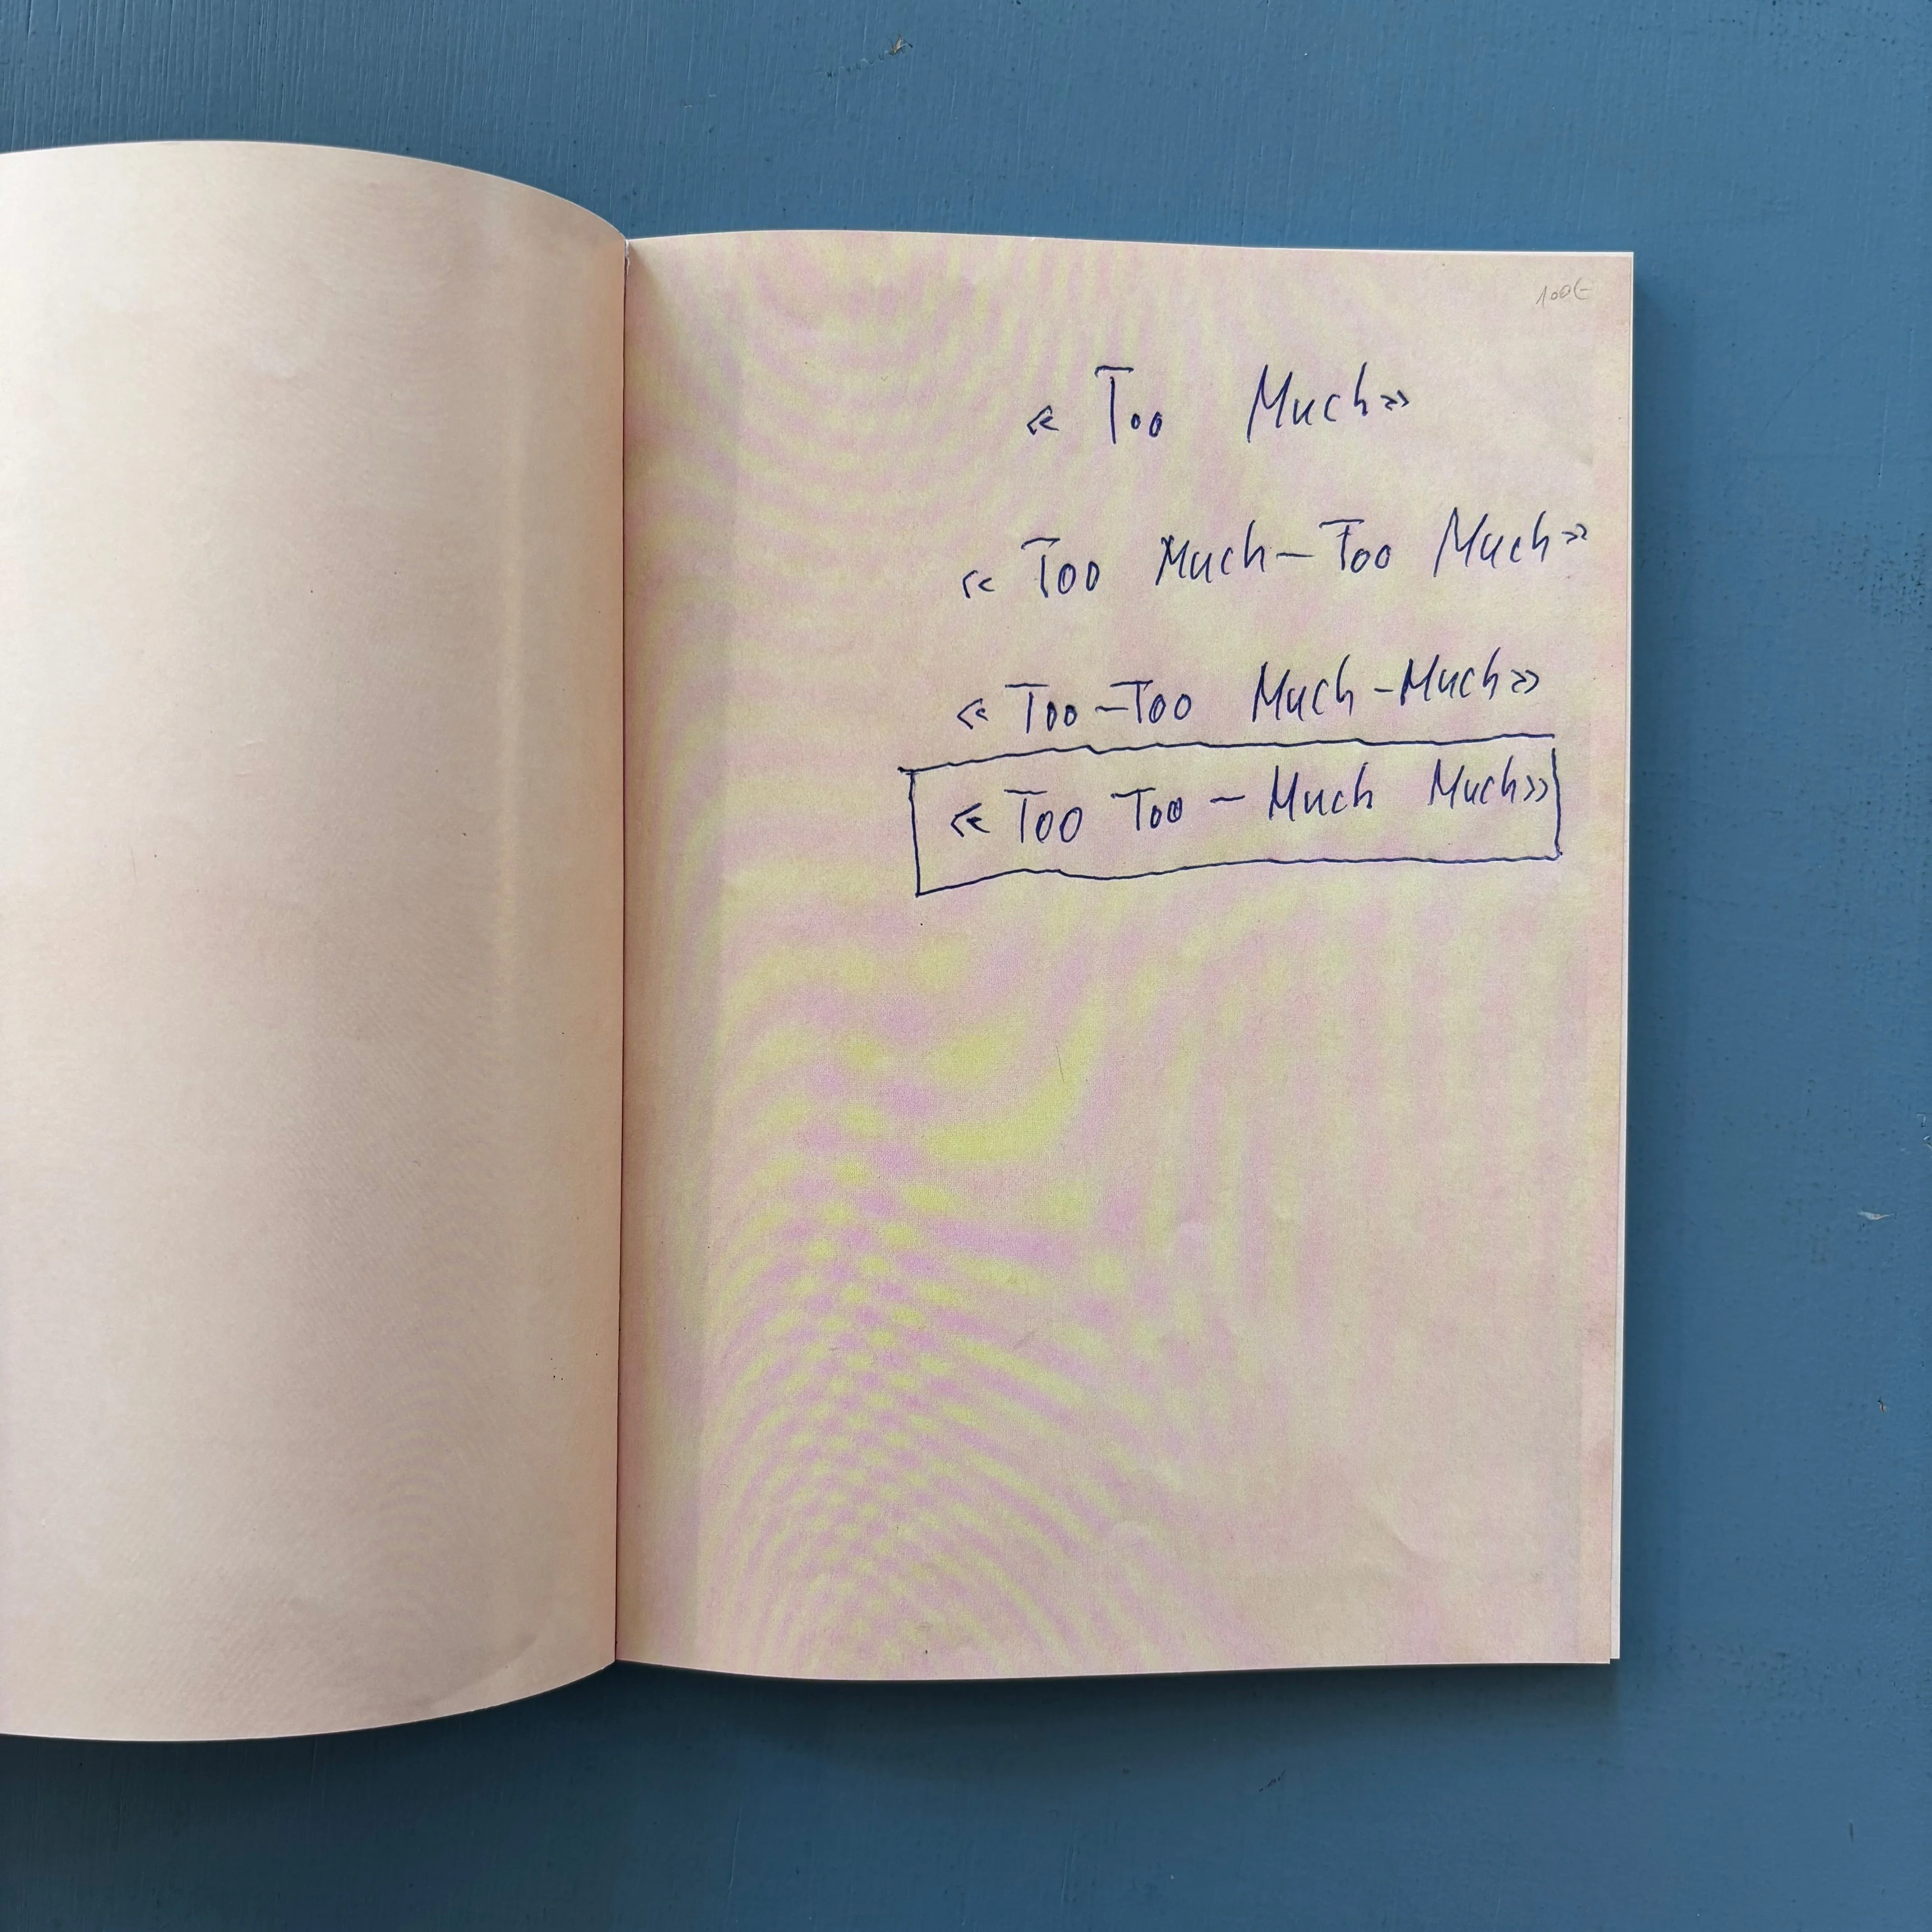 100€
« Too Much»
« Too Much–Too Much»
« Too–Too Much–Much»
« Too Too – Much Much»